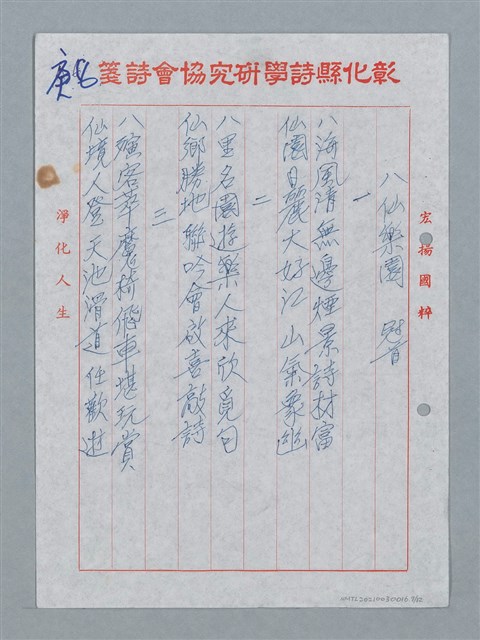 彰化縣詩學研究協會詩箋
宏揚國粹
八仙樂園 冠首
一
八海風清無邊煙景詩材富
仙園日麗大好江山氣象幽
二
八里名園遊樂人來欣覓句
仙鄉勝地聯吟會啟喜敲詩
三
八殯客萃摩椅飛車堪玩賞
仙境人登天池滑道任歡遊
淨化人生